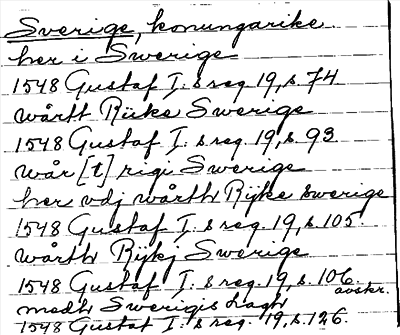 Sverige, konungarike
her i Swerige
1548 Gustaf I:s reg. 19, s. 74
wårtt Riike Swerige
1548 Gustaf I:s reg. 19, s. 93
wår[t] rigi Swerige
her vdj wårth Rijke Swerige
1548 Gustaf I:s reg. 19, s. 105
wårth Rijkj Swerige
1548 Gustaf I:s reg. 19, s. 106
avskr.
medh Swerigis Lagh
1548 Gustaf I:s reg. 19, s. 126